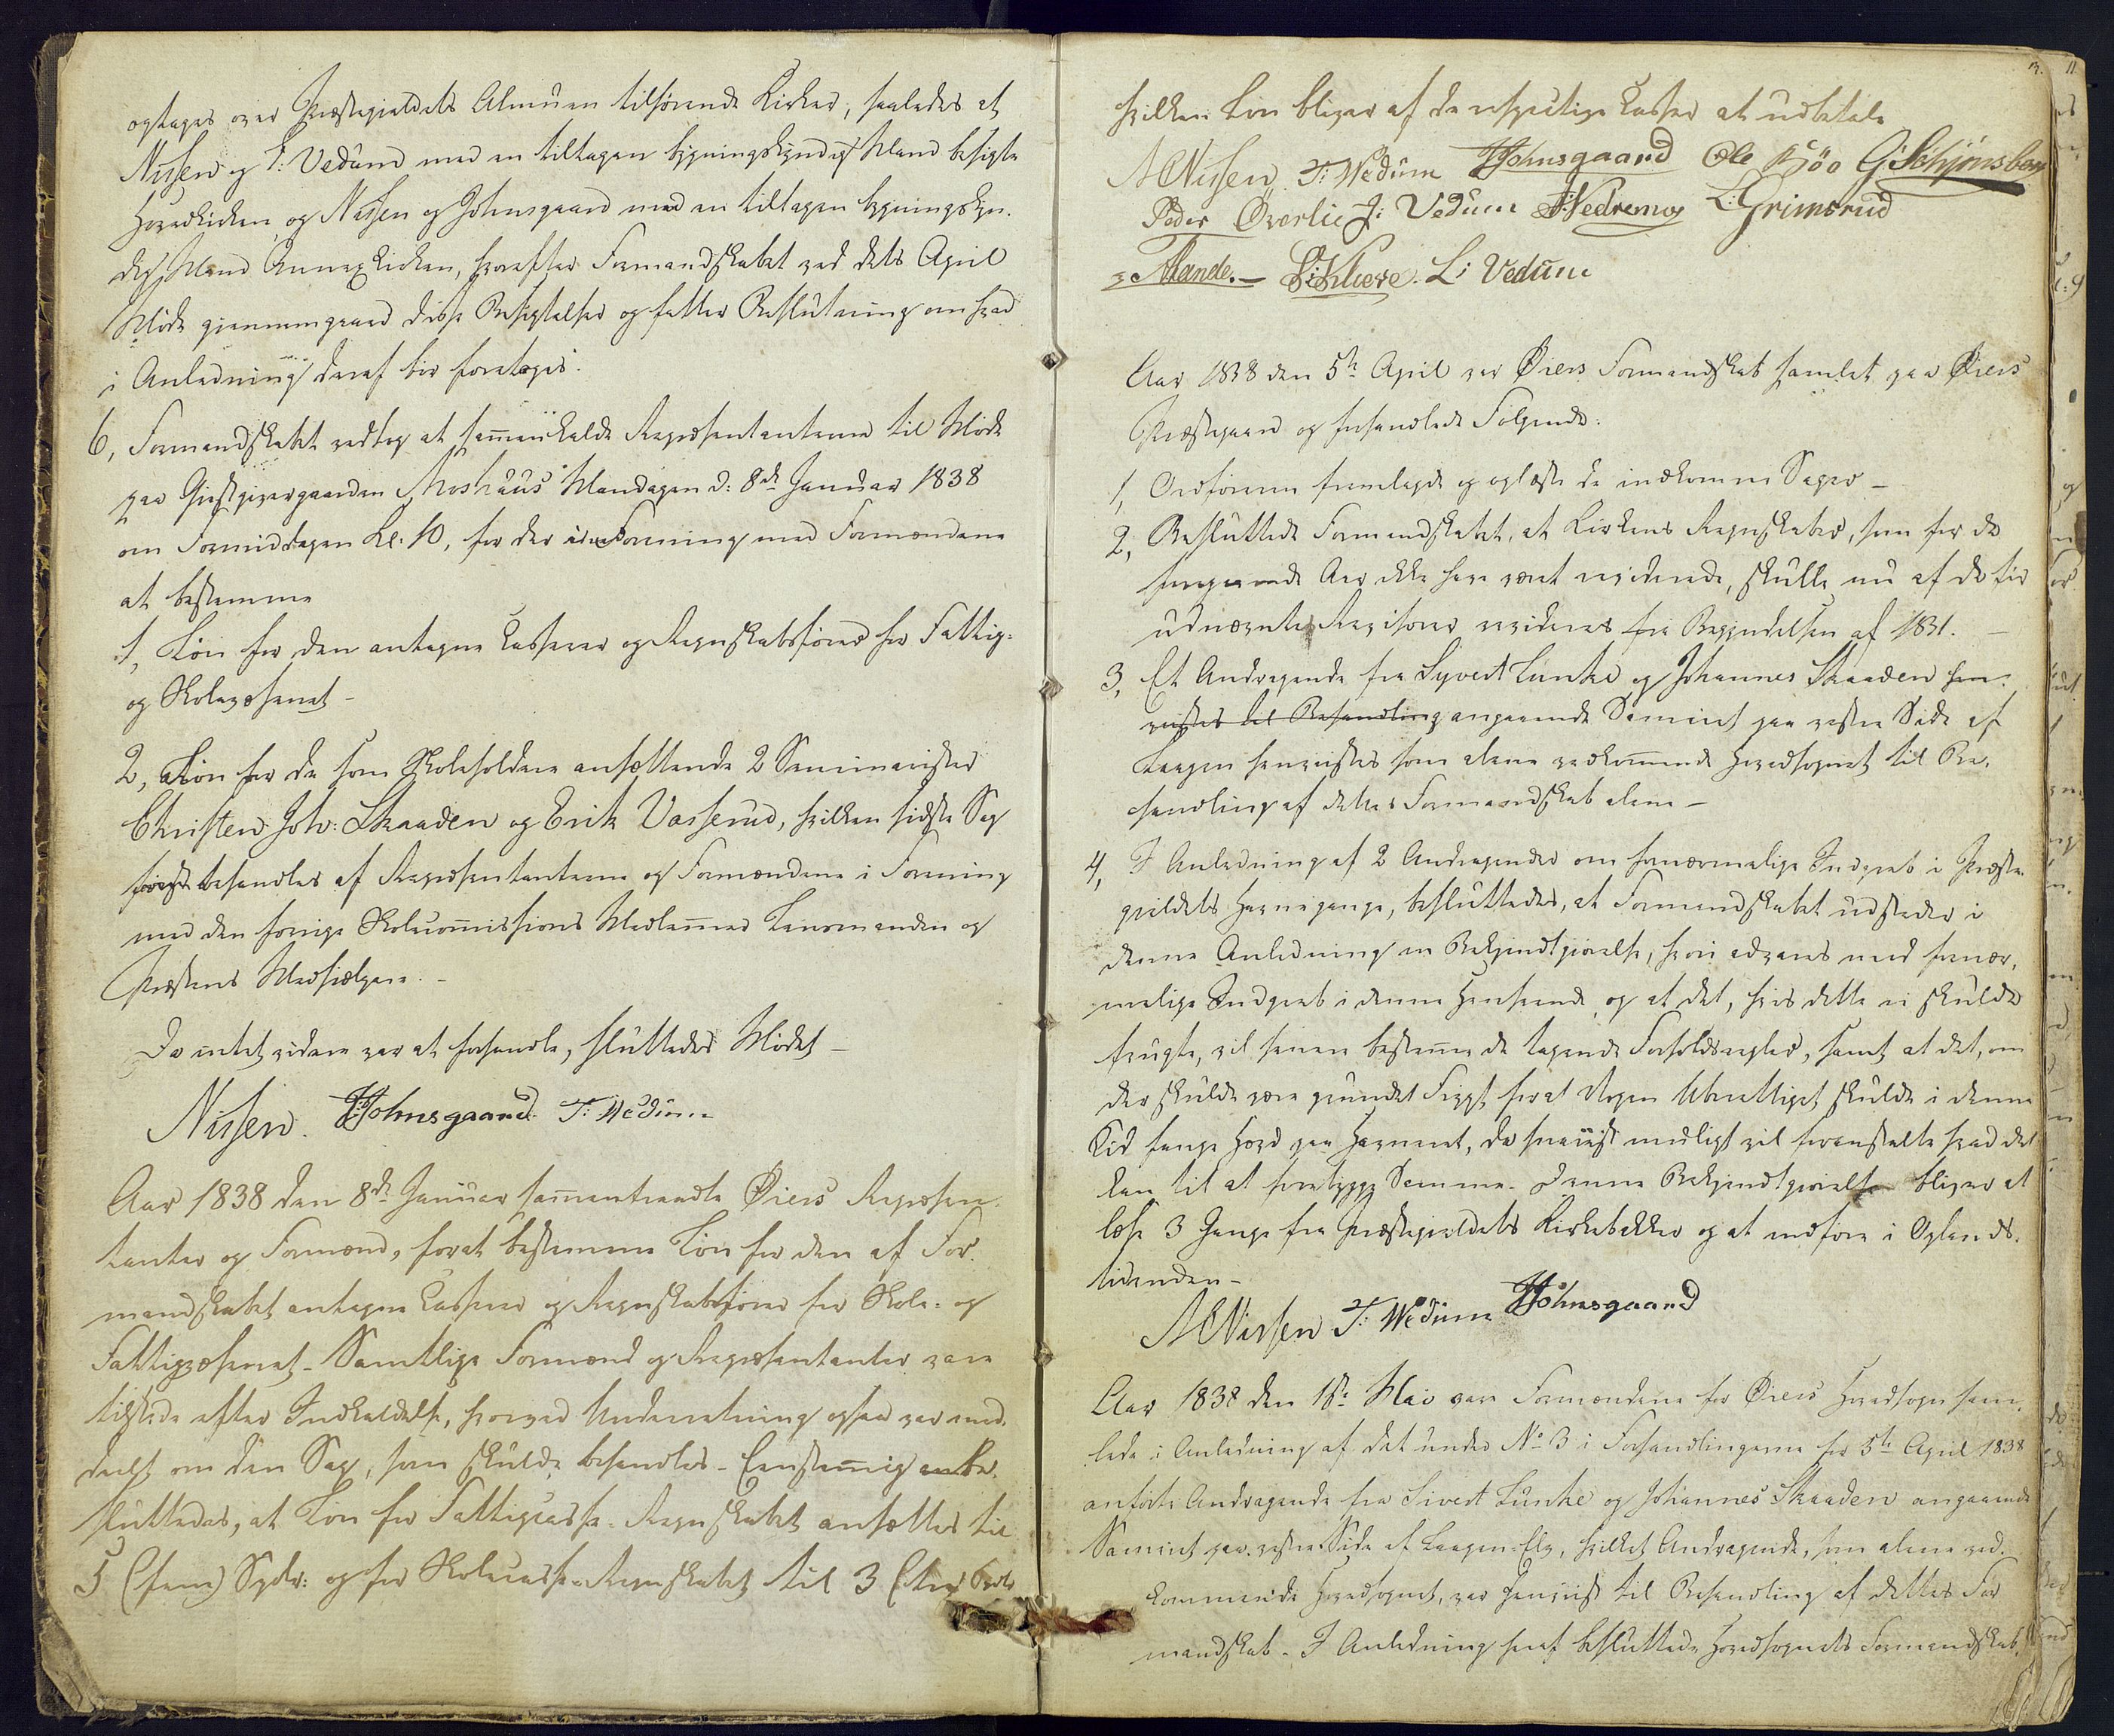 optages over Præstegjældets Almuen tilhørende Kirker, saaledes at
Nissen og T: Vedum med en tiltagen bygningskyndig Mand besigte
Hovedkirken, og Nissen og Johnsgaard med en tiltagen bygningskyn-
dig Mand Annexkirken, hvorefter Formandskabet ved dets April
Møde gjennemgaaer disse Besigtelser og fatter Beslutning om hvad
i Anledning deraf bør foretages.
6, Formandskabet vedtog at sammenkalde Repræsentanterne til Møde
paa Gjestgivergaarden Moshuus Mandagen d: 8de Januar 1838
om Formiddagen Kl: 10, for der i Forening med Formændene
at bestemme
1, Løn for den antagne Casserer og Regnskabsfører for Fattig-
og Skolevæsenet –
2, Løn for de som Skoleholdere ansættende 2 Seminarister
Christen Joh: Skaaden og Erik Vasserud, hvilken sidste Sag
først behandles af Repræsentanterne og Formændene i Forening
med den forrige Skolecommissions Medlemmer Lensmanden og
Præstens Medhjælpere. –
Da intet videre var at forhandle, sluttedes Mødet –
Nissen. Johnsgaard. T: Wedum
Aar 1838 den 8de Januar sammentraadte Øiers Repræsen-
tanter og Formænd, for at bestemme Løn for den af For-
mandskabet antagne Casserer og Regnskabsfører for Skole- og
Fattigvæsenet – Samtlige Formænd og Repræsentanter vare
tilstede efter Indkaldelse, hvorved Underretning ogsaa var med-
deelt om den Sag, som skulde behandles – Eenstemmig be-
sluttedes, at Løn for Fattigcasse-Regnskabet ansættes til
5 (fem) Spdlr: og for Skolecasse-Regnskabet til 3 (tre) Spdlr
hvilken Løn bliver af de respective Casser at udbetale
Nissen T: Wedum Johnsgaard Ole Bjöe G: Schjönsberg
Peder Øverlie J: Vedum Vedremoe L: Grimsrud
Aande. – Kluere. L: Vedum
Aar 1838 den 5te April var Øiers Formandskab samlet paa Øiers
Præstegaard og forhandlede Følgende:
1, Ordføreren fremlagde og oplæste de indkomne Sager –
2, Besluttede Formandskabet, at Kirkens Regnskaber, som for de
foregaaende Aar ikke have været reviderede, skulle nu af de før
udnævnte Revisorer revideres fra Begyndelsen af 1831. –
3, Et Andragende fra Syvert Lunke og Johannes Skaaden hen-
vistes til Behandling angaaende Samvirk paa vestre Side af
Laagen henvistes som alene vedkommende Hovedsognet til Be-
handling af dettes Formandskab alene –
4, I Anledning af 2 Andragender om fornærmelige Indgreb i Præste-
gjeldets Havnegange, besluttedes, at Formandskabet udsteder i
denne Anledning en Bekjendtgjørelse, hvori advares mod fornær-
melige Indgreb i denne Henseende, og at det, hvis dette ei skulde
frugte, vil senere bestemme de tagende Forholdsregler, samt at det, om
der skulde være grundet Frygt for at Nogen Uberettiget skulde i denne
Tid fange Hord paa Havnet, da snarest muligt vil foranstalte hvad det
kan til at forebygge Samme. Denne Bekjendtgjørelse bliver at
læse 3 Gange fra Præstegjeldets Kirkebakker og at indføre i Oplands-
tidenden –
Nissen T: Wedum Johnsgaard
Aar 1838 den 18de Mai vare Formændene for Øiers Hovedsogn sam-
lede i Anledning af det under No 3 i Forhandlingerne for 5te April 1838
anførte Andragende fra Sivert Lunke og Johannes Skaaden angaaende
Samvirk paa vestre Side af Laagen-Elv, hvilket Andragende, som alene ved-
kommende Hovedsognet, var henviist til Behandling af dettes For
mandskab – I Anledning heraf besluttede Hovedsognets Formandskab